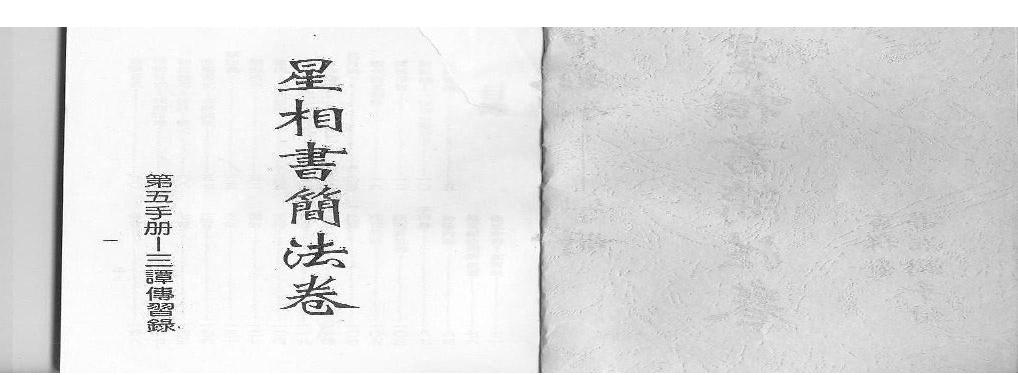 星相書簡法卷
第五手册－三譚傳習錄
一